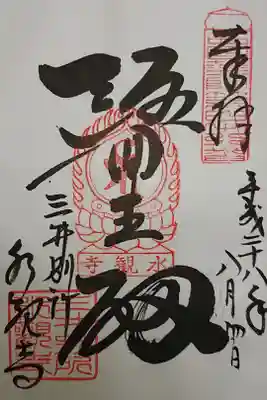 奉拝
平成二十八年
八月四日
醫王殿
水観寺
三井別所
水観寺